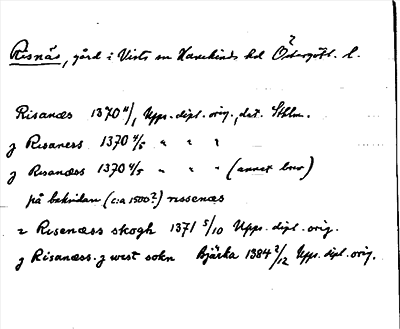 Risnäs, gård i Vists sn Hanekinds hd Östergötl. l.
Risanæs 1370 11/1 Upps. dipl. orig., dat. Sthlm.
j Risaness 1370 4/5 " " "
j Risanæss 1370 4/5 " " " (annat brev)
på baksidan (c:a 1500?) rissenæs
i Risenæss skogh 1371 5/10 Upps. dipl. orig.
j Risanæss. j wist sokn Bjärka 1384 2/12 Upps. dipl. orig.